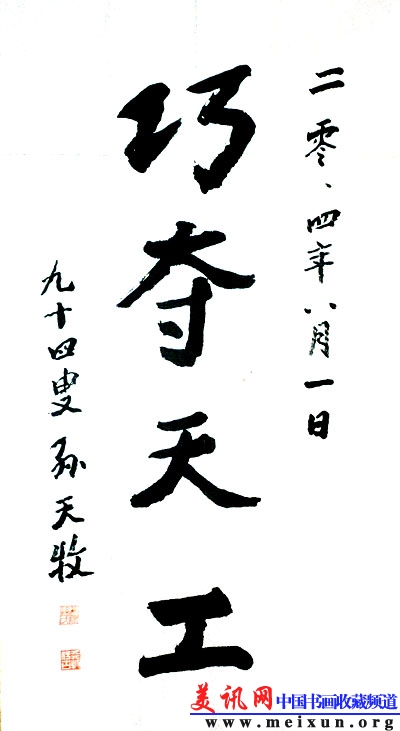 二零、四年八月一日
巧夺天工
九十四叟 孙天牧
美讯网 中国书画收藏频道
www.meixun.org